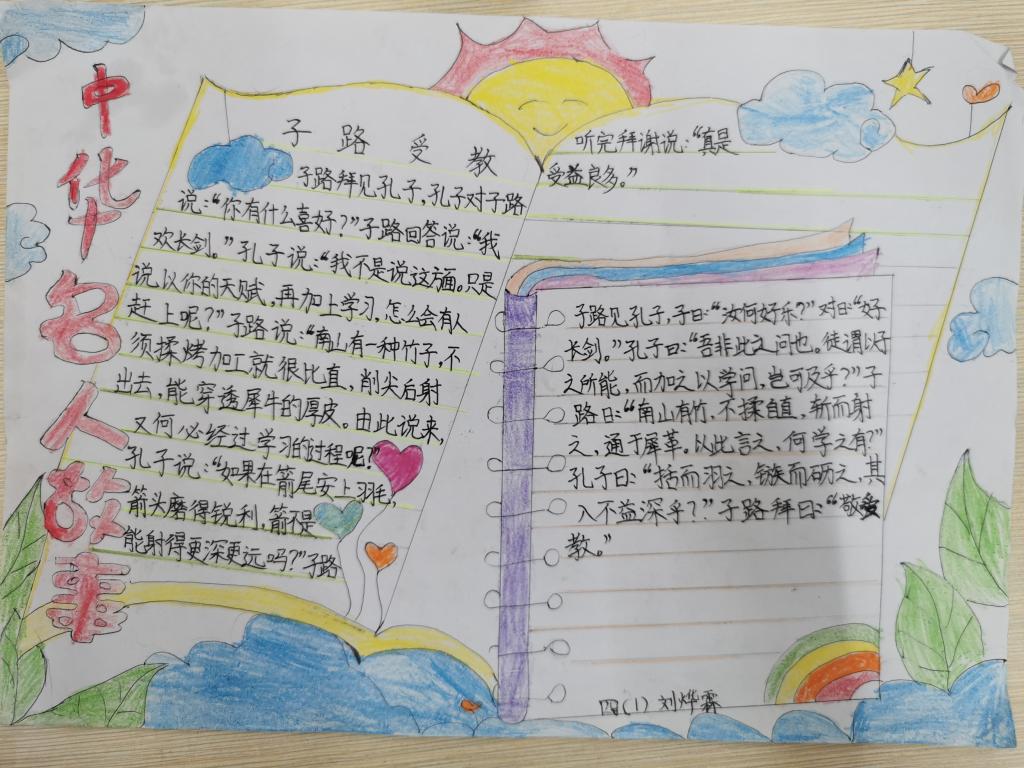 中华名人故事
子路受教
子路拜见孔子,孔子对子路
说:“你有什么喜好?”子路回答说:“我
欢长剑。”孔子说:“我不是说这方面。只是
说以你的天赋,再加上学习,怎么会有人
赶上呢?”子路说:“南山有一种竹子,不
须揉烤加工就很比直,削尖后射
出去,能穿透犀牛的厚皮。由此说来,
又何必经过学习的过程呢?”
孔子说:“如果在箭尾安上羽毛,
箭头磨得锐利,箭不是
能射得更深更远吗?”子路
听完拜谢说:“真是
受益良多。”
子路见孔子,子曰:“汝何好乐?”对曰:“好
长剑。”孔子曰:“吾非此之问也。徒谓以子
之所能,而加之以学问,岂可及乎?”子
路曰:“南山有竹,不揉自直,斩而射
之,通于犀革。以此言之,何学之有?”
孔子曰:“括而羽之,镞而砺之,其
入不益深乎?”子路拜曰:“敬受
教。”
四(1)刘烨霖